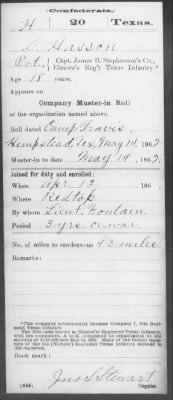 Confederate.
H 20 Texas.
S. Hasson
Pvt., Capt. James B. Stephenson's Co.,
Elmore's Reg't Texas Infantry.*
Age 18 years.
Appears on
Company Muster-in Roll
of the organization named above.
Roll dated Camp Travis,
Hempstead, Tex, May 14, 1862
Muster-in to date May 14, 1862.
Joined for duty and enrolled:
When Apr 12, 186
Where Redtop
By whom Lieut. Fountain
Period 3 yrs. or war
No. of miles to rendezvous 43 miles
Remarks:
*This company subsequently became Company
Texas Infantry.
Book mark:
Jno S Stewart
Copyist.